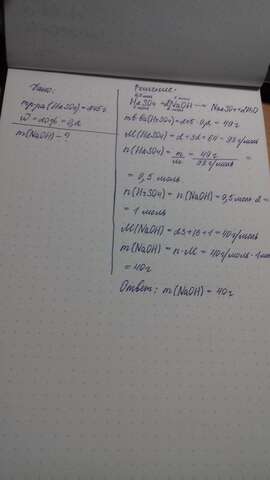 Дано:
mр-ра(H₂SO₄) = 245 г
W = 20% = 0,2
m(NaOH) - ?
Решение:
0,5 моль 1 моль
H₂SO₄ + 2NaOH → Na₂SO₄ + 2H₂O
1 моль 2 моль
mв-ва(H₂SO₄) = 245 · 0,2 = 49 г
M(H₂SO₄) = 2 + 32 + 64 = 98 г/моль
n(H₂SO₄) = m/M = 49 г / 98 г/моль =
= 0,5 моль
n(H₂SO₄) = n(NaOH) = 0,5 моль · 2 =
= 1 моль
M(NaOH) = 23 + 16 + 1 = 40 г/моль
m(NaOH) = n · M = 40 г/моль · 1 моль
= 40 г
Ответ: m(NaOH) = 40 г